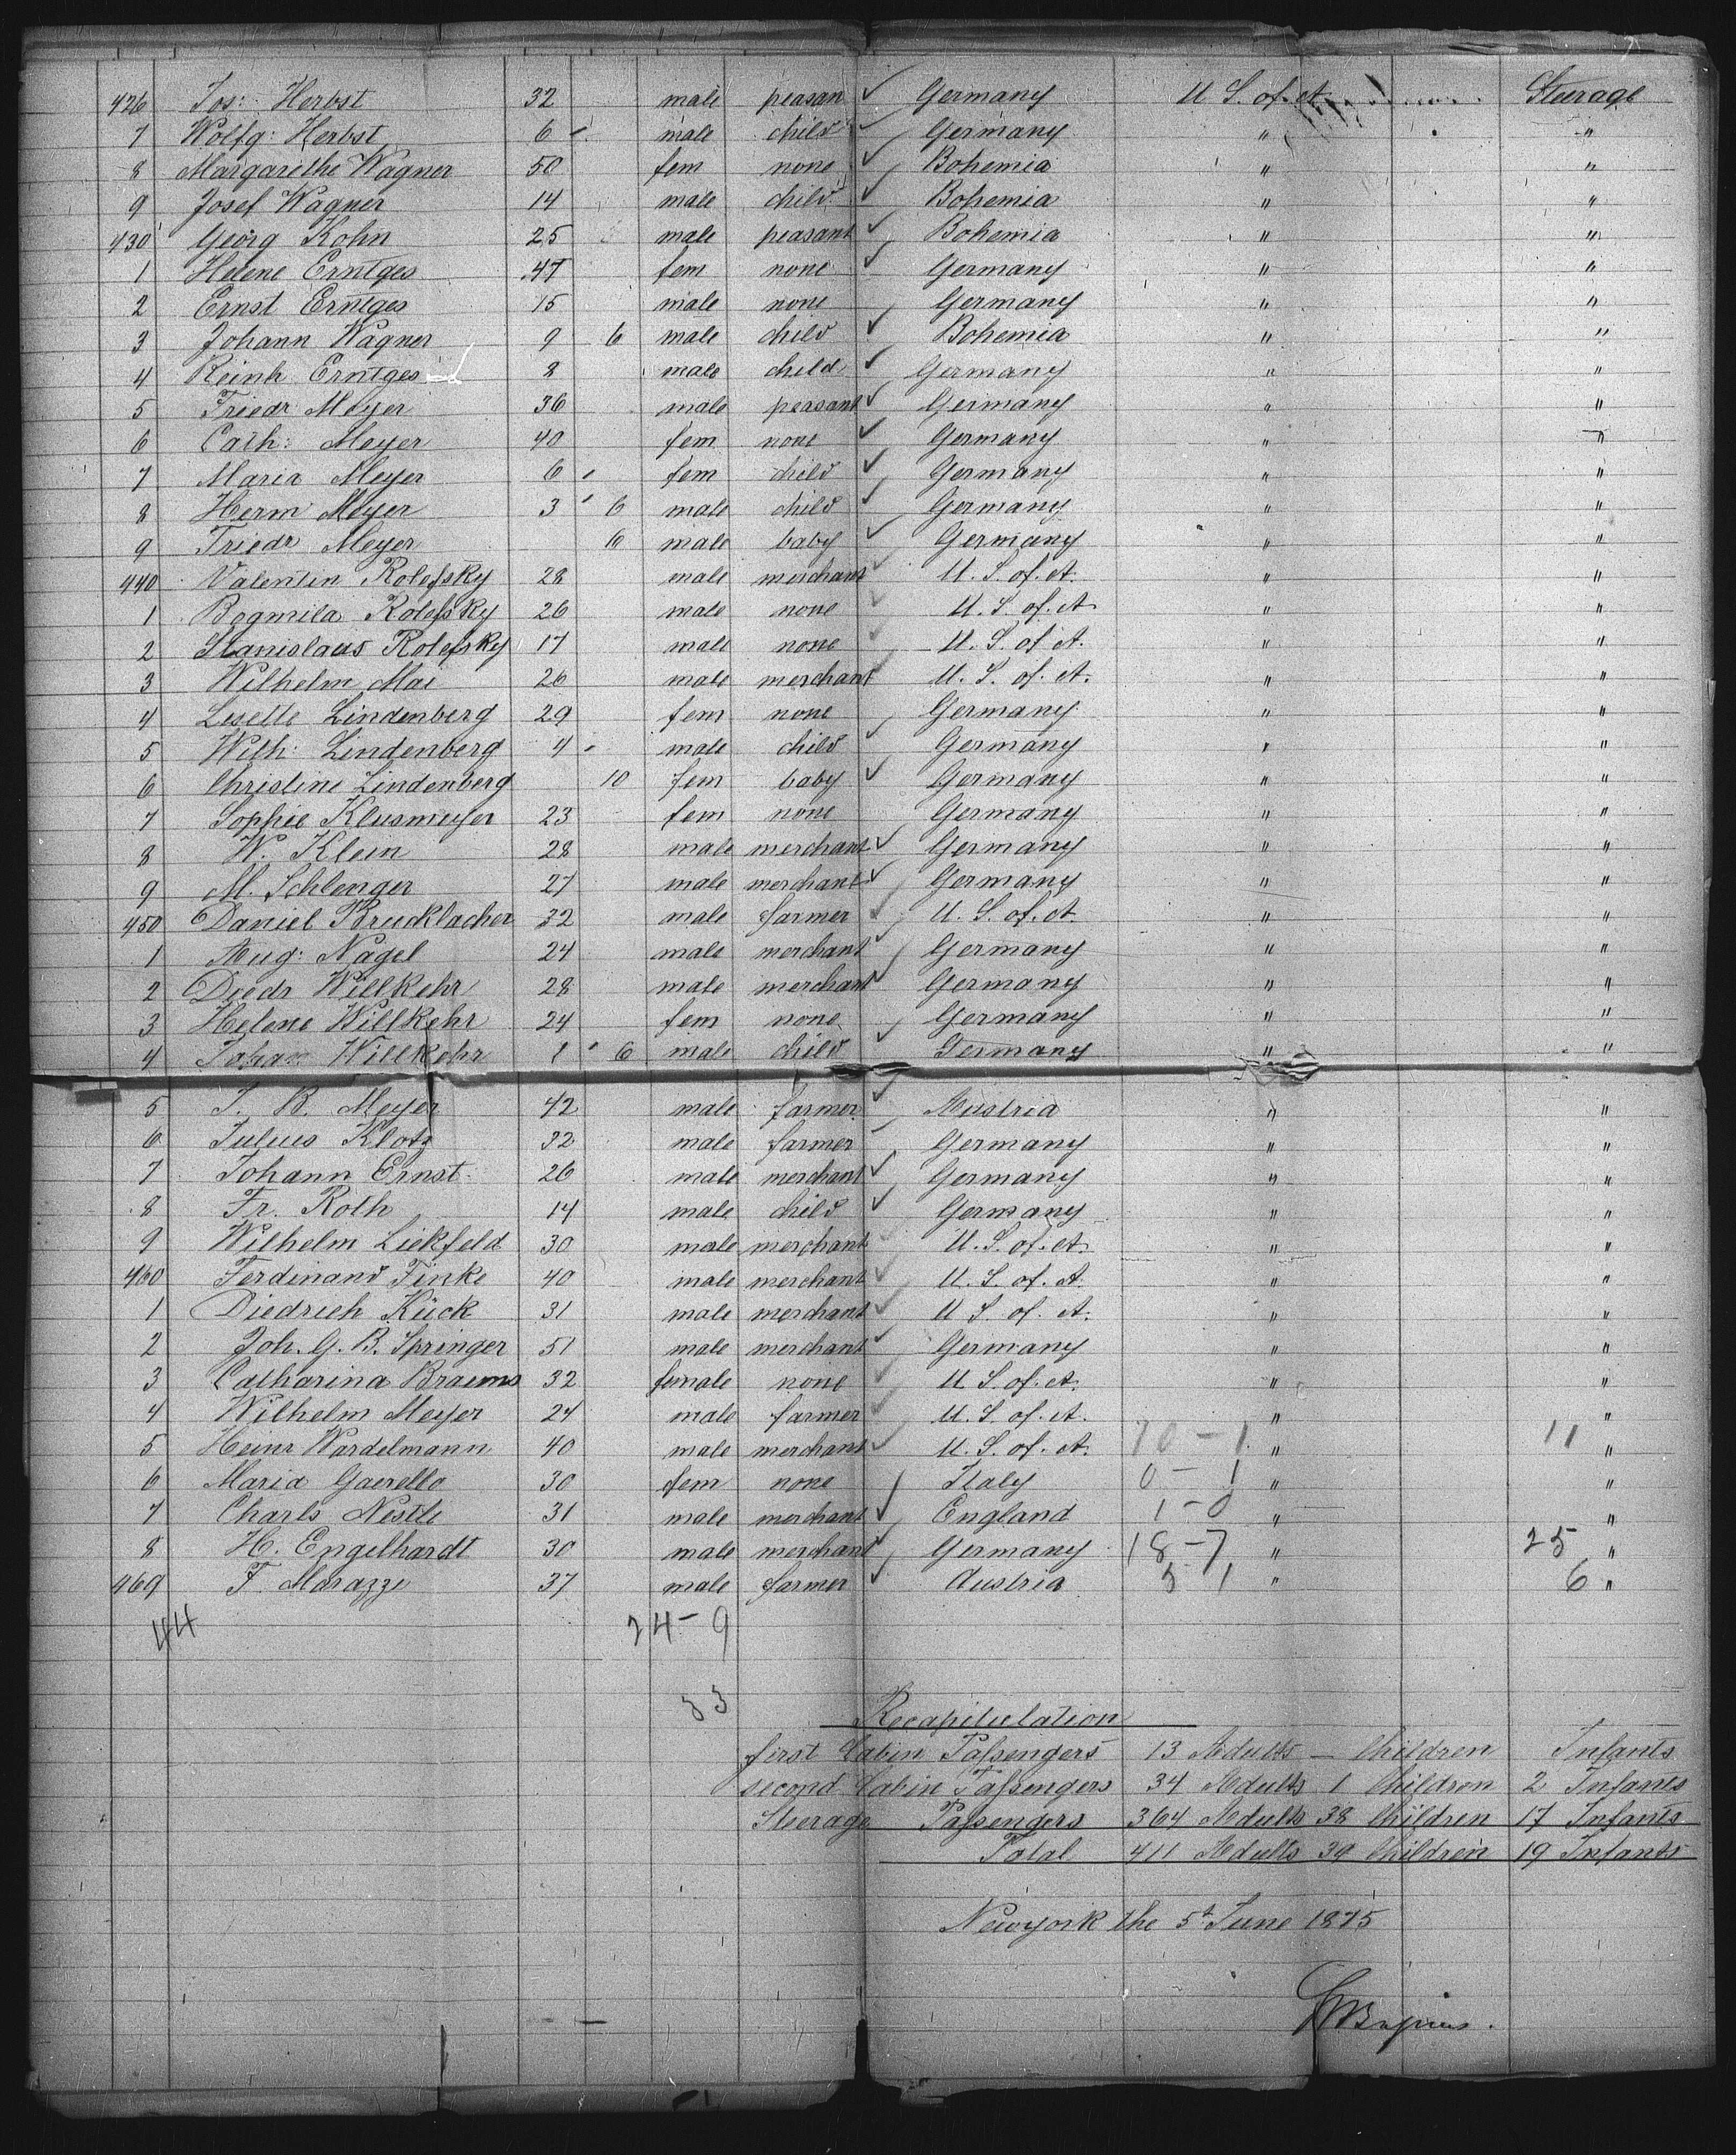 426 Jos: Herbst 32 male peasan ✓ Germany U S. of. A Steerage
7 Wolfg: Herbst 6 - male child ✓ Germany " "
8 Margarethe Wagner 50 fem none ✓ Bohemia " "
9 Josef Wagner 14 male child ✓ Bohemia " "
430 Georg Kohn 25 male peasant ✓ Bohemia " "
1 Helene Erntges 47 fem none ✓ Germany " "
2 Ernst Erntges 15 male none Germany " "
3 Johann Wagner 9 6 male child ✓ Bohemia " "
4 Reinh Erntges 8 male child ✓ Germany " "
5 Friedr Meyer 36 male peasant ✓ Germany " "
6 Cath: Meyer 40 fem none ✓ Germany " "
7 Maria Meyer 6 fem child ✓ Germany " "
8 Herm Meyer 3 6 male child ✓ Germany " "
9 Friedr Meyer 6 male baby ✓ Germany " "
440 Valentin Rolefsky 28 male merchant ✓ U. S. of. A. " "
1 Bogmila Rolefsky 26 male none ✓ U. S of. A " "
2 Stanislaus Rolefsky 17 male none ✓ U. S. of A. " "
3 Wilhelm Mai 26 male merchant U. S. of. A. " "
4 Lisette Lindenberg 29 fem none Germany " "
5 Wilh: Lindenberg 4 - male child ✓ Germany " "
6 Christine Lindenberg 10 fem baby ✓ Germany " "
7 Sophie Klusmeyer 23 fem none Germany " "
8 W. Klein 28 male merchant ✓ Germany " "
9 M. Schlenger 27 male merchant ✓ Germany " "
450 Daniel Brucklacher 32 male farmer ✓ U. S. of. A " "
1 Aug: Nagel 24 male merchant ✓ Germany " "
2 Diedr Willkehr 28 male merchant ✓ Germany " "
3 Helene Willkehr 24 fem none Germany " "
4 Johan Willkehr 1 6 male child ✓ Germany " "
5 J. B. Meyer 42 male farmer ✓ Austria " "
6 Julius Klotz 32 male farmer Germany " "
7 Johann Ernst 26 male merchant ✓ Germany " "
8 Fr. Roth 14 male child ✓ Germany " "
9 Wilhelm Liekfeld 30 male merchant ✓ U. S. of. A. " "
460 Ferdinand Finke 40 male merchant ✓ U. S. of. A. " "
1 Diedrich Kück 31 male merchant ✓ U S. of. A. " "
2 Joh. G. B. Springer 51 male merchant ✓ Germany " "
3 Catharina Braems 32 female none ✓ U. S. of. A. " "
4 Wilhelm Meyer 24 male farmer ✓ U. S of. A. " "
5 Heinr Wardelmann 40 male merchant ✓ U. S. of. A. 10 - 1 " 11 "
6 Maria Gaerello 30 fem none Italy 0 - 1 " "
7 Charls Nestle 31 male merchant ✓ England 1 - 0 " "
8 H. Engelhardt 30 male merchant ✓ Germany 18 - 7 " 25 "
469 F. Marazzi 37 male farmer ✓ Austria 5 1 " 6 "
44 24 - 9
33
Recapitulation
first Cabin Passengers 13 Adults — Children Infants
second Cabin Passengers 34 Adults 1 Children 2 Infants
Steerage Passengers 364 Adults 38 Children 17 Infants
Total 411 Adults 39 Children 19 Infants
Newyork the 5t June 1875